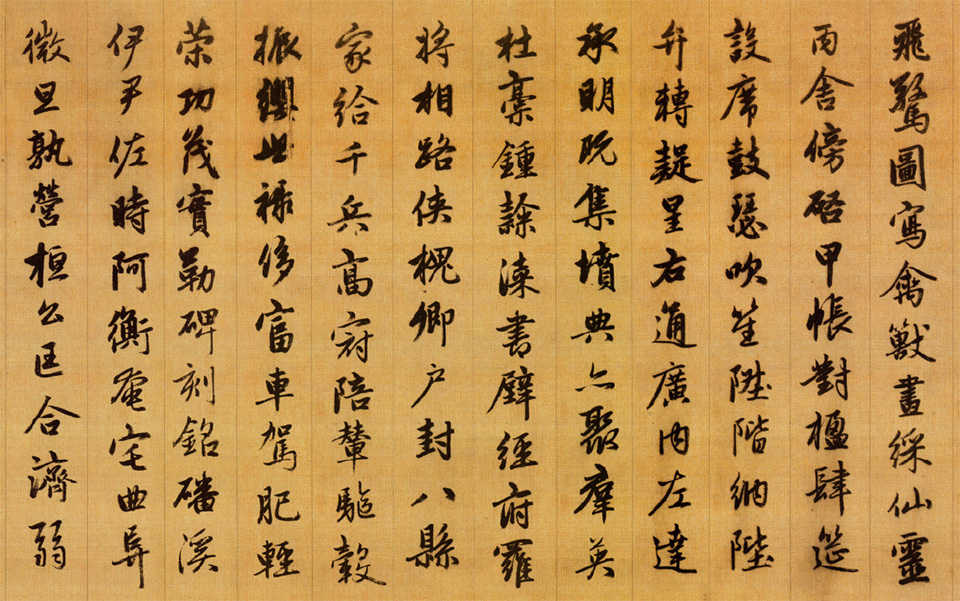 飛驚圖寫禽獸畫綵仙靈
丙舍傍啓甲帳對楹肆筵
設席鼓瑟吹笙陞階納陛
弁轉疑星右通廣內左達
承明既集墳典亦聚羣英
杜稾鍾隸漆書壁經府羅
將相路俠槐卿戶封八縣
家給千兵高冠陪輦驅轂
振纓世祿侈富車駕肥輕
策功茂實勒碑刻銘磻溪
伊尹佐時阿衡奄宅曲阜
微旦孰營桓公匡合濟弱